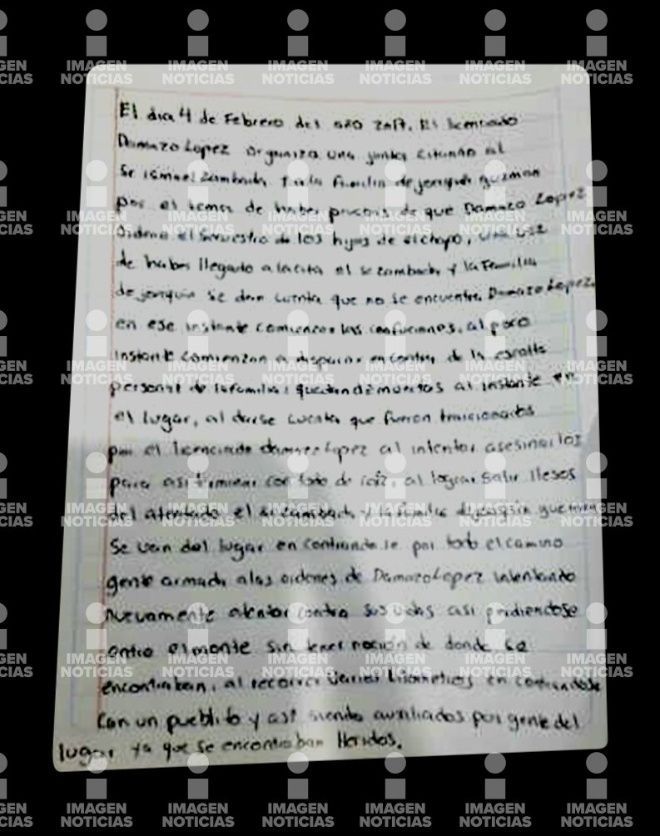 El dia 4 de Febrero del año 2017. El licenciado
Damazo Lopez organiza una junta citando al
Sr ismael Zambada y a la familia de juaquin guzman
por el tema de haber de que Damazo Lopez
ordeno el secuestro de los hijos de el chapo, una vez
de haber llegado a la cita el sr zambada y la Familia
de juaquin se dan cuenta que no se encuentra Damazo Lopez,
en ese instante comienzan las confuciones, al poco
instante comienzan a disparar en contra de la escolta
personal de la familia quedando muertos al instante en
el lugar, al darse cuenta que fueron traicionados
por el licenciado damazo Lopez al intentar asesinarlos
para asi terminar con todo de raiz, al lograr salir ilesos
del atentado el sr zambada y la familia de juaquin guzman
Se van del lugar encontrandose por todo el camino
gente armada a las ordenes de Damazo Lopez intentando
nuevamente atentar contra sus vidas asi perdiendose
entre el monte sin tener noción de donde se
encontraban, al recorrer varios kilometros encontrandose
Con un pueblito y asi siendo auxiliados por gente del
lugar ya que se encontraban Heridos.
IMAGEN NOTICIAS